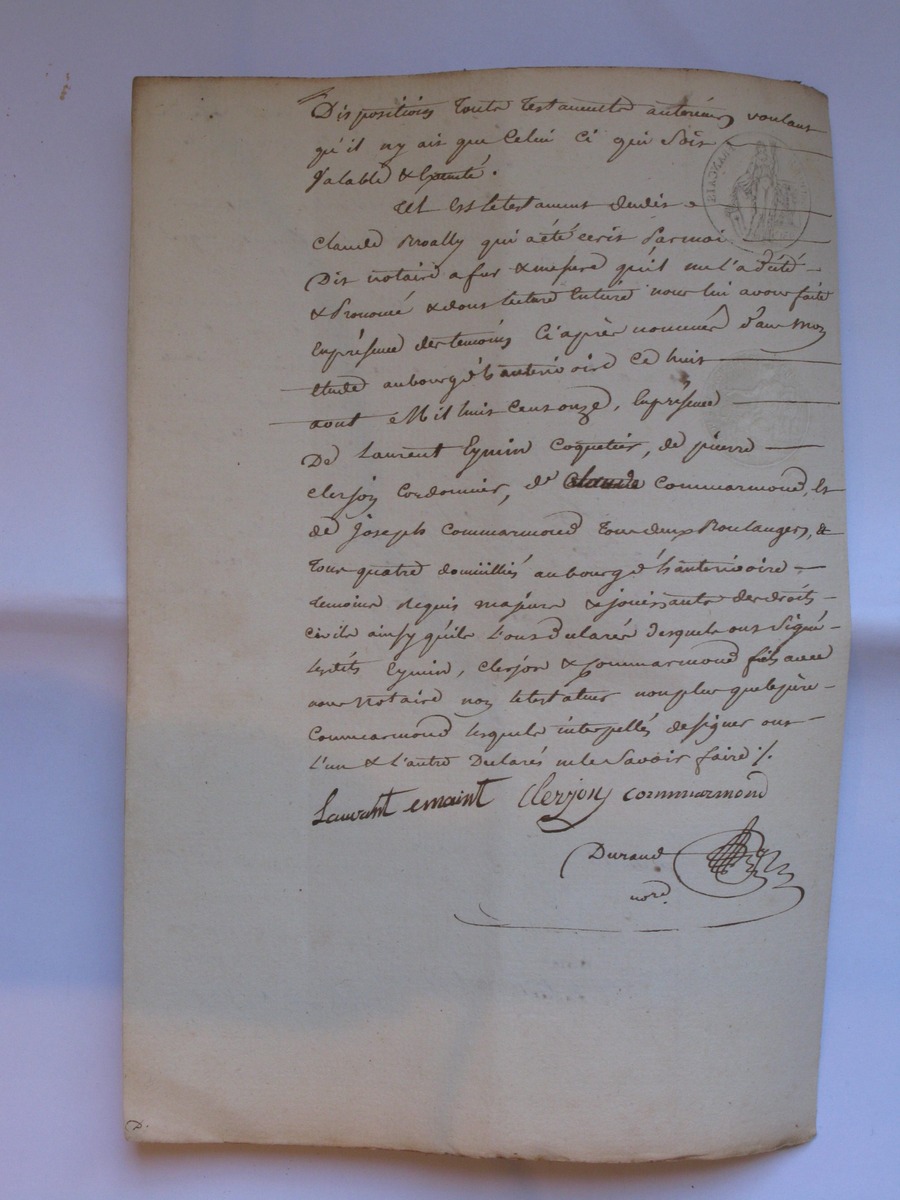 Dispositions toute testamente anterieur voulant
qu'il ny ait que Celui Ci qui Soit
Valable &
tel Est le testament dudit
Claude Broally qui a été ecrit Par moi
Dit notaire a fur & mesure qu'il me l'a dicté
& Prononcé & dont lecture Entiere nous lui avons faite
En présence des temoins Ci après nommés dans mon
etude au bourg d'hanterivoire Ce huit
aout Mil huit Cent onze, En présence
De Laurent Eymin Coquetier, de pierre
Clerjon Cordonnier, de Claude Commarmond, Et
de Joseph Commarmond tous deux Boulangers, &
tous quatre domiciliés au bourg d'hanterivoire
temoins requis majurs & jouissants des droits
Civils ainsy qu'ils L'ont déclarés desquels ont Signé
lesdits Eymin, Clerjon & Commarmond fils avec
nous Notaire non le testateur non plus que le père
Commarmond lesquels interpellés de signer ont
L'un & l'autre Declarés ne le Savoir faire ./.
Laurant emaint Clerjon commarmond
Durand
nore.